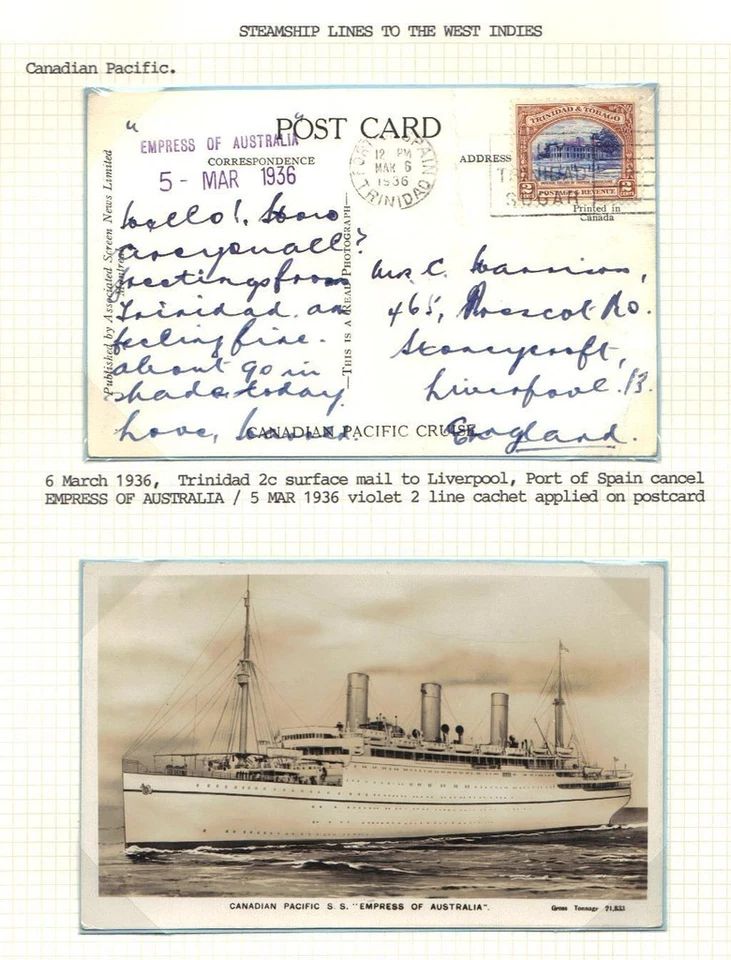 STEAMSHIP LINES TO THE WEST INDIES
Canadian Pacific.
POST CARD
"EMPRESS OF AUSTRALIA"
CORRESPONDENCE
ADDRESS
5 - MAR 1936
PORT OF SPAIN
12 PM
MAR 6
1936
TRINIDAD
TRINIDAD & TOBAGO
2c 2c
POSTAGE & REVENUE
SUGAR
Printed in
Canada
Published by Associated Screen News Limited
Montreal
—THIS IS A REAL PHOTOGRAPH—
Hello! How
are you all?
Greetings from
Trinidad. am
feeling fine.
about 90 in
shade today
Love,
Mr. C. Harrison,
465, Prescot Rd.
Stoneycroft,
Liverpool. 13.
England.
CANADIAN PACIFIC CRUISE
6 March 1936, Trinidad 2c surface mail to Liverpool, Port of Spain cancel
EMPRESS OF AUSTRALIA / 5 MAR 1936 violet 2 line cachet applied on postcard
CANADIAN PACIFIC S.S. "EMPRESS OF AUSTRALIA".
Gross Tonnage 21,833